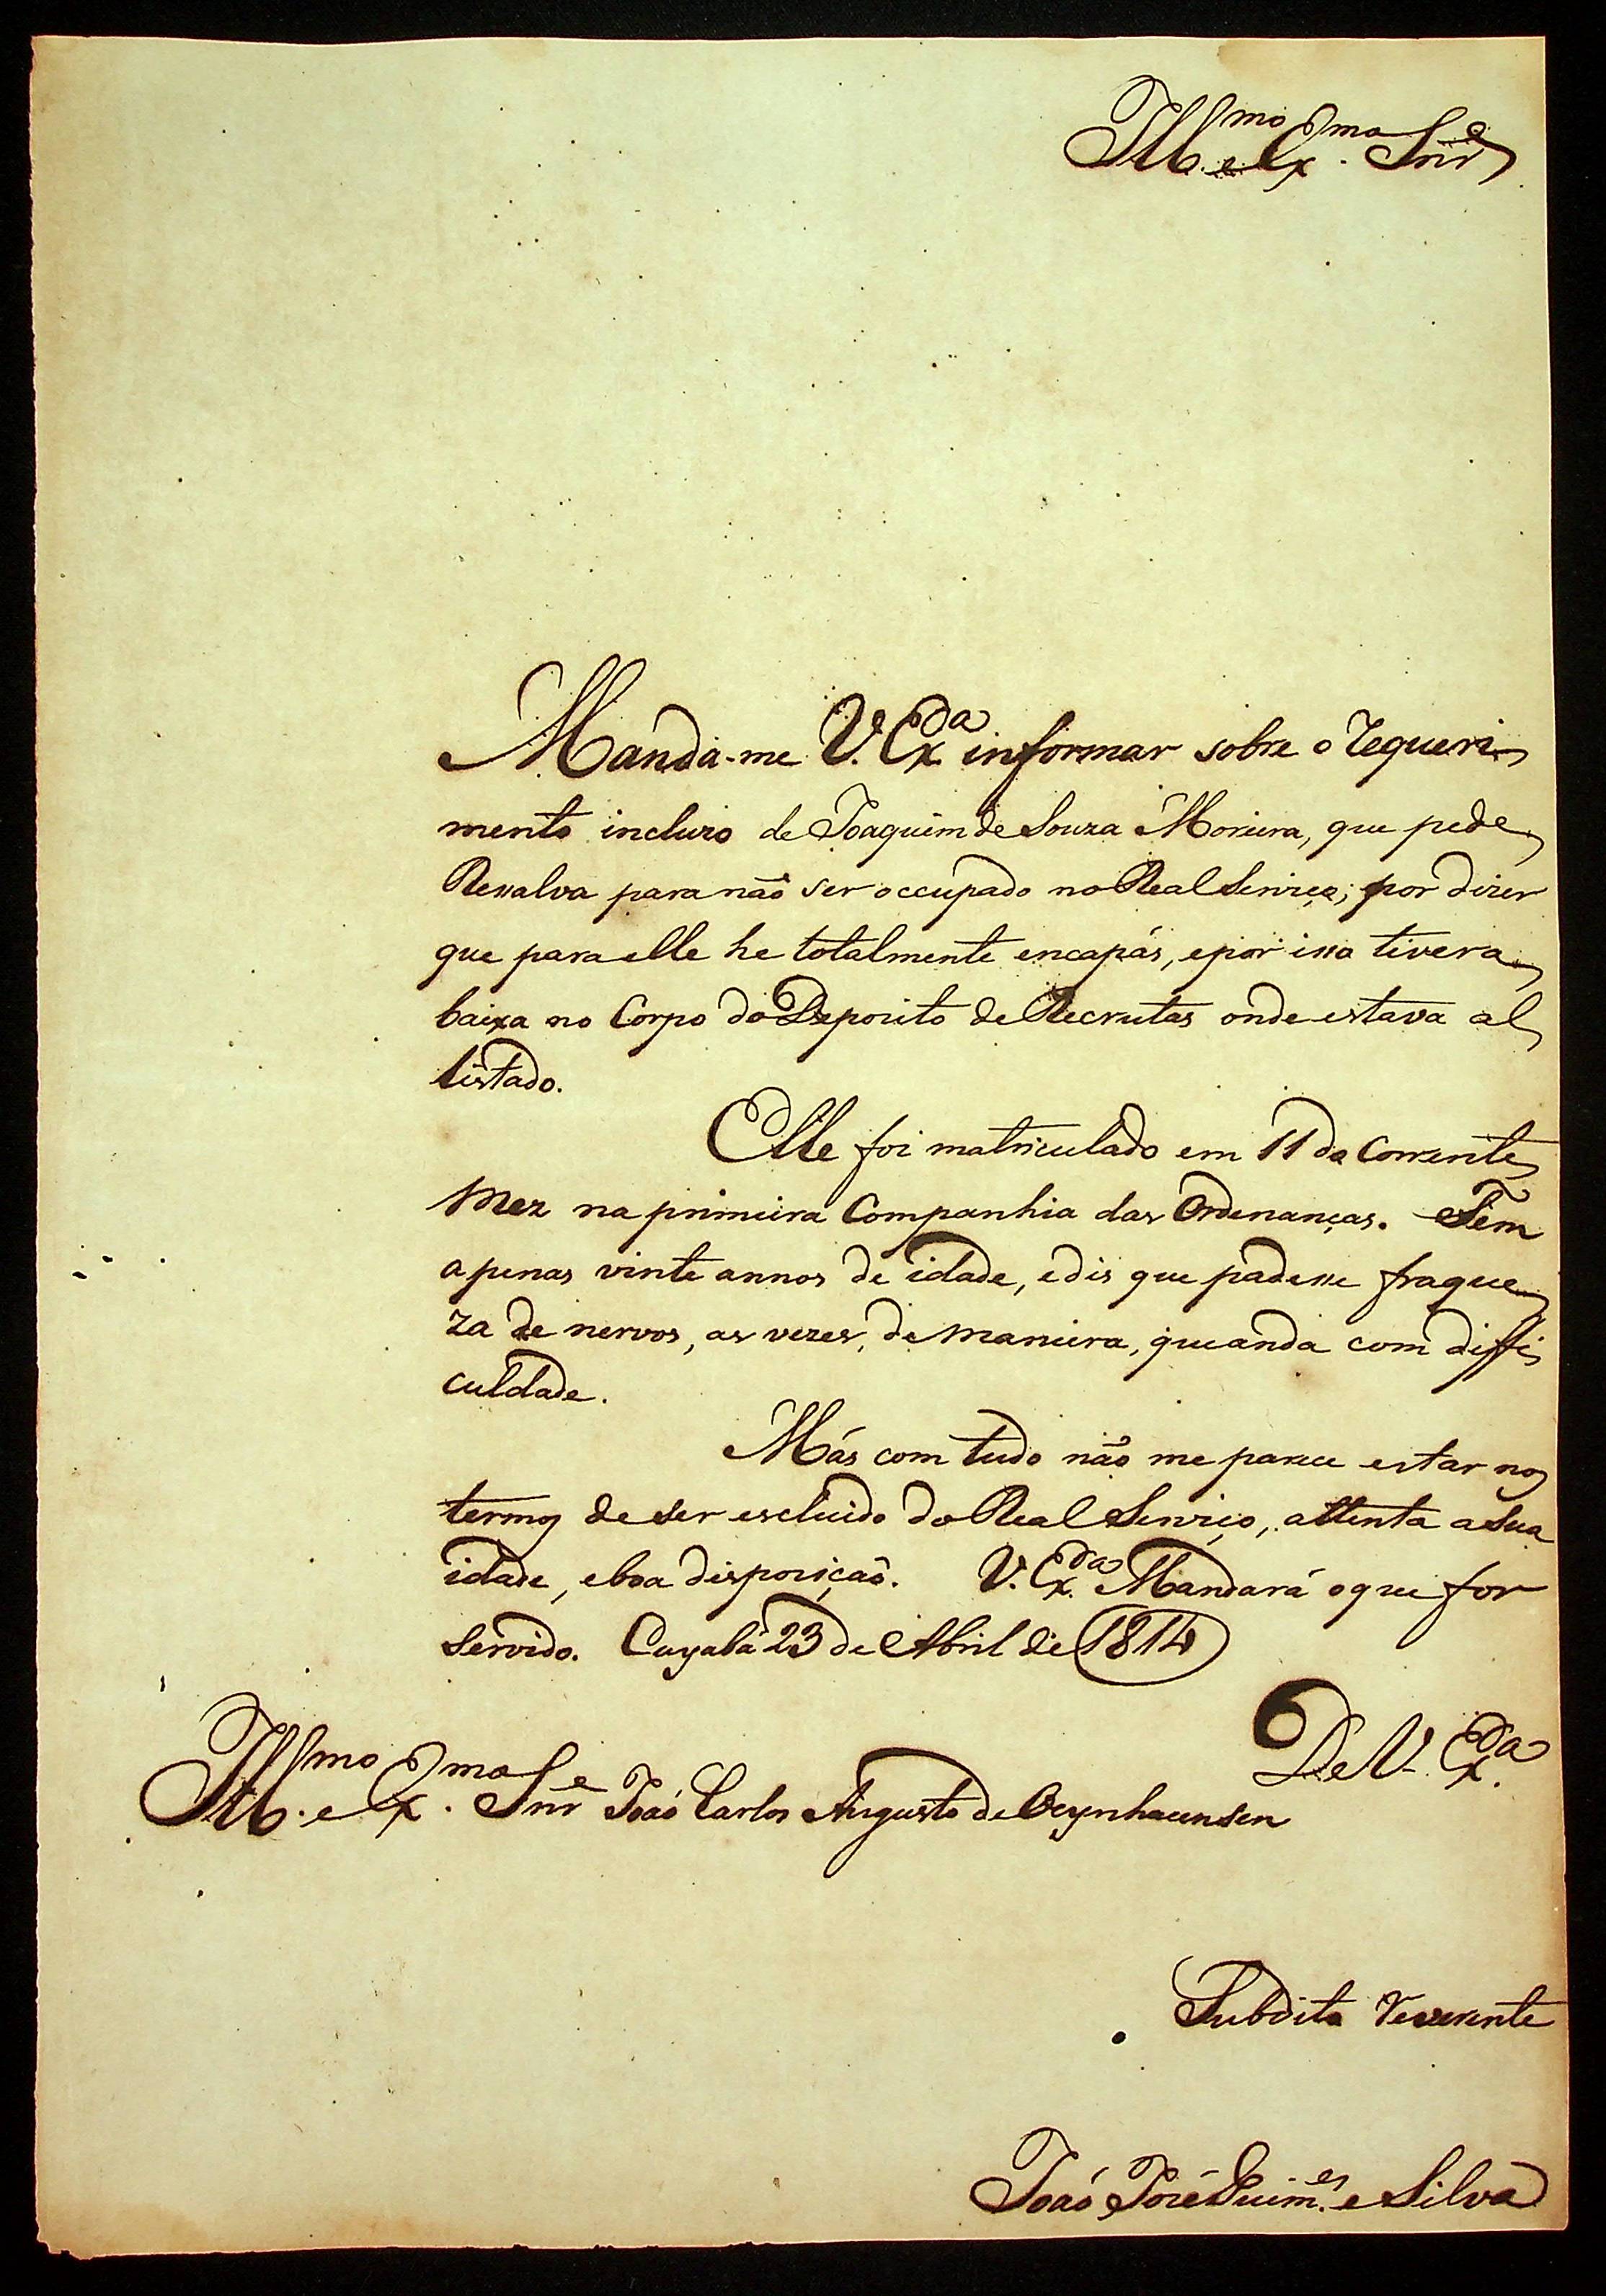 Ill.mo e Ex.mo Snr.
Manda-me V. Ex.da informar sobre o reqeri
mento incluzo de Joaquim de Souza Moreira, que pede
Ressalva para não ser occupado no Real Serviço; por dizer
que para elle he totalmente encapás, e por isso tivera
baixa no Corpo do Depozito de Recrutas onde estava al
listado.
Elle foi matriculado em 11 do Corrente
Mez na primeira Companhia das Ordenanças. Tem
apenas vinte annos de idade, e dis que padesse fraque
za de nervos, as vezes, de maneira, que anda com diffi
culdade.
Más com tudo não me parece estar nos
termos de ser escluido do Real Serviço, attenta a Sua
idade, e boa dispozição. V. Ex.da Mandará o que for
Servido. Cuyabá 23 de Abril de 1814
De V. Ex.da
Ill.mo e Ex.mo Snr. João Carlos Augusto de Oeynhaunsen
Subdito Reverente
João José Guim.es e Silva